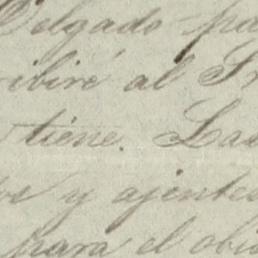 Delgado pa
ribiré al Sr
tiene. Las
y ajentes
para el obj